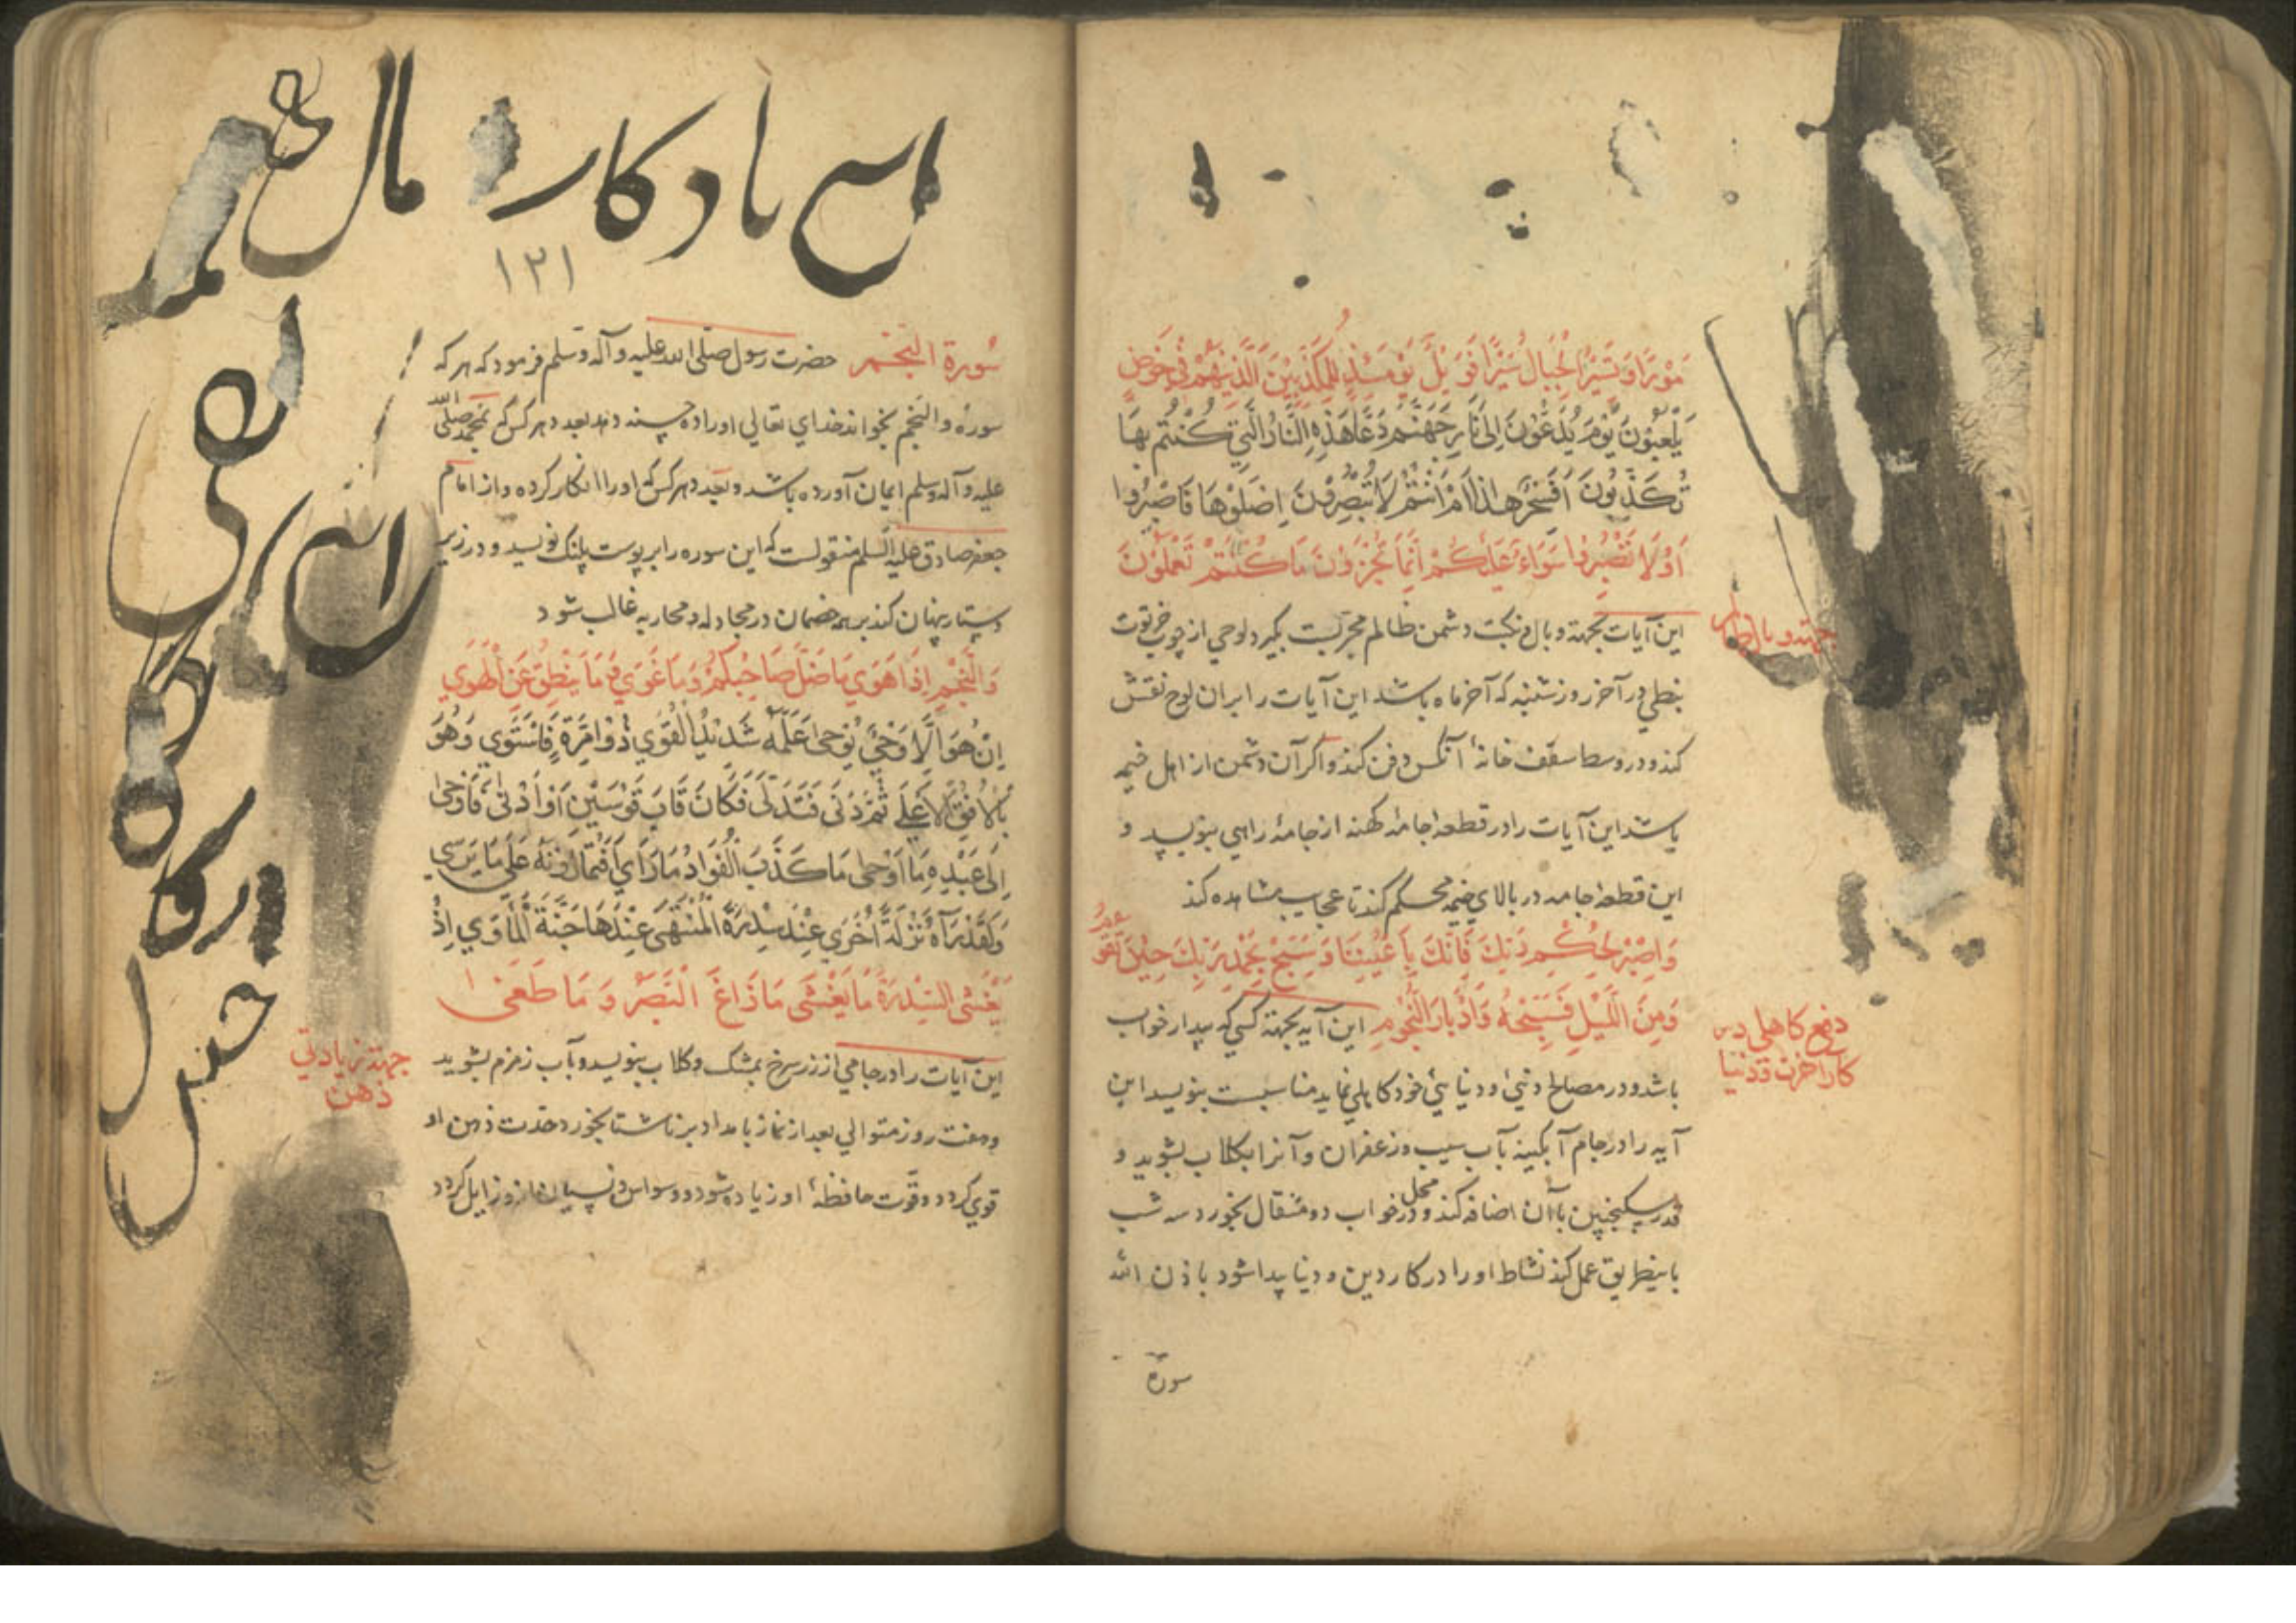 مَوْرًا وَتَسِيرُ الْجِبَالُ سَيْرًا فَوَيْلٌ يَوْمَئِذٍ لِلْمُكَذِّبِينَ الَّذِينَ هُمْ فِي خَوْضٍ
يَلْعَبُونَ يَوْمَ يُدَعُّونَ إِلَى نَارِ جَهَنَّمَ دَعًّا هَذِهِ النَّارُ الَّتِي كُنْتُمْ بِهَا
تُكَذِّبُونَ أَفَسِحْرٌ هَذَا أَمْ أَنْتُمْ لَا تُبْصِرُونَ اِصْلَوْهَا فَاصْبِرُوا
أَوْ لَا تَصْبِرُوا سَوَاءٌ عَلَيْكُمْ إِنَّمَا تُجْزَوْنَ مَا كُنْتُمْ تَعْمَلُونَ
این آیات بجهة وبال و نکبت دشمن ظالم مجربست بکیرد لوحی از چوب خرتوت
نبطی در آخر روز شنبه که آخر ماه باشد این آیات را بران لوح نقش
کند و در وسط سقف خانهٔ آنکس دفن کند و اکر آن دشمن از اهل خیمه
باشد این آیات را در قطعهٔ جامهٔ کهنه از جامهٔ راهبی بنویسد و
این قطعهٔ جامه در بالای خیمه محکم کند تا عجایب مشاهده کند
وَاصْبِرْ لِحُكْمِ رَبِّكَ فَإِنَّكَ بِأَعْيُنِنَا وَسَبِّحْ بِحَمْدِ رَبِّكَ حِينَ تَقُومُ
وَمِنَ اللَّيْلِ فَسَبِّحْهُ وَإِدْبَارَ النُّجُومِ این آیه بجهة کسی که بیدار خواب
باشد و در مصالح دینی و دنیائی خود کاهلی نماید مناسبست بنویسد این
آیه را در جام آبکینه بآب سیب و زعفران و آنرا بکلاب بشوید و
قدر سکنجبین باآن اضافه کند و در محل خواب دو مثقال بخورد سه شب
باینطریق عمل کند نشاط او را در کار دین و دنیا پیدا شود باذن الله
سورة
جهة وبال ظالم
دفع کاهلی در
کار آخرت و دنیا
این یادکار مال
۱۲۱
سورة النجم حضرت رسول صلی الله علیه و آله وسلم فرمود که هر که
سورهٔ والنجم بخواند خدای تعالی او را ده حسنه دهد بعدد هر کس که بمحمد صلی الله
علیه و آله وسلم ایمان آورده باشد و بعدد هر کس که او را انکار کرده و از امام
جعفر صادق علیه السلم منقولست که این سوره را بر پوست پلنک نویسد و در زیر
دستار پنهان کند بر همه خصمان در مجادله و محاربه غالب شود
وَالنَّجْمِ إِذَا هَوَى مَا ضَلَّ صَاحِبُكُمْ وَمَا غَوَى وَمَا يَنْطِقُ عَنِ الْهَوَى
إِنْ هُوَ إِلَّا وَحْيٌ يُوحَى عَلَّمَهُ شَدِيدُ الْقُوَى ذُو مِرَّةٍ فَاسْتَوَى وَهُوَ
بِالْأُفُقِ الْأَعْلَى ثُمَّ دَنَى فَتَدَلَّى فَكَانَ قَابَ قَوْسَيْنِ أَوْ أَدْنَى فَأَوْحَى
إِلَى عَبْدِهِ مَا أَوْحَى مَا كَذَبَ الْفُؤَادُ مَا رَأَى أَفَتُمَارُونَهُ عَلَى مَا يَرَى
وَلَقَدْ رَآهُ نَزْلَةً أُخْرَى عِنْدَ سِدْرَةِ الْمُنْتَهَى عِنْدَهَا جَنَّةُ الْمَأْوَى إِذْ
يَغْشَى السِّدْرَةَ مَا يَغْشَى مَا زَاغَ الْبَصَرُ وَمَا طَغَى
این آیات را در جامی از زر سرخ بمشک و کلاب بنویسد و بآب زمزم بشوید
و هفت روز متوالی بعد از نماز بامداد بر ناشتا بخورد حدت ذهن او
قوی کردد و قوت حافظهٔ او زیاده شود و وسواس و نسیان از او زایل کردد
جهة زیادتی
ذهن